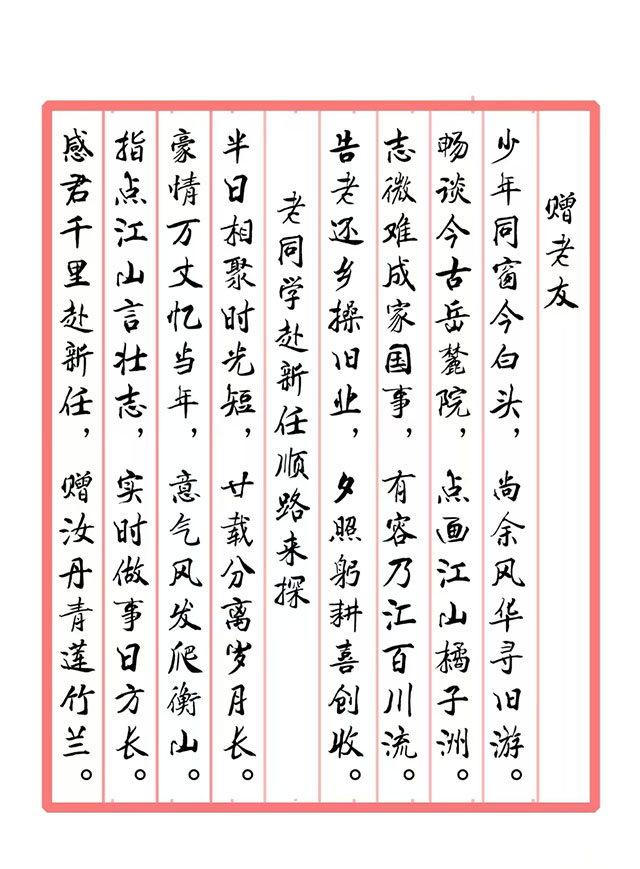 赠老友
少年同窗今白头，尚余风华寻旧游。
畅谈今古岳麓院，点画江山橘子洲。
志微难成家国事，有容乃汇百川流。
告老还乡操旧业，夕照躬耕喜创收。
老同学赴新任顺路来探
半日相聚时光短，廿载分离岁月长。
豪情万丈忆当年，意气风发爬衡山。
指点江山言壮志，实时做事日方长。
感君千里赴新任，赠汝丹青莲竹兰。